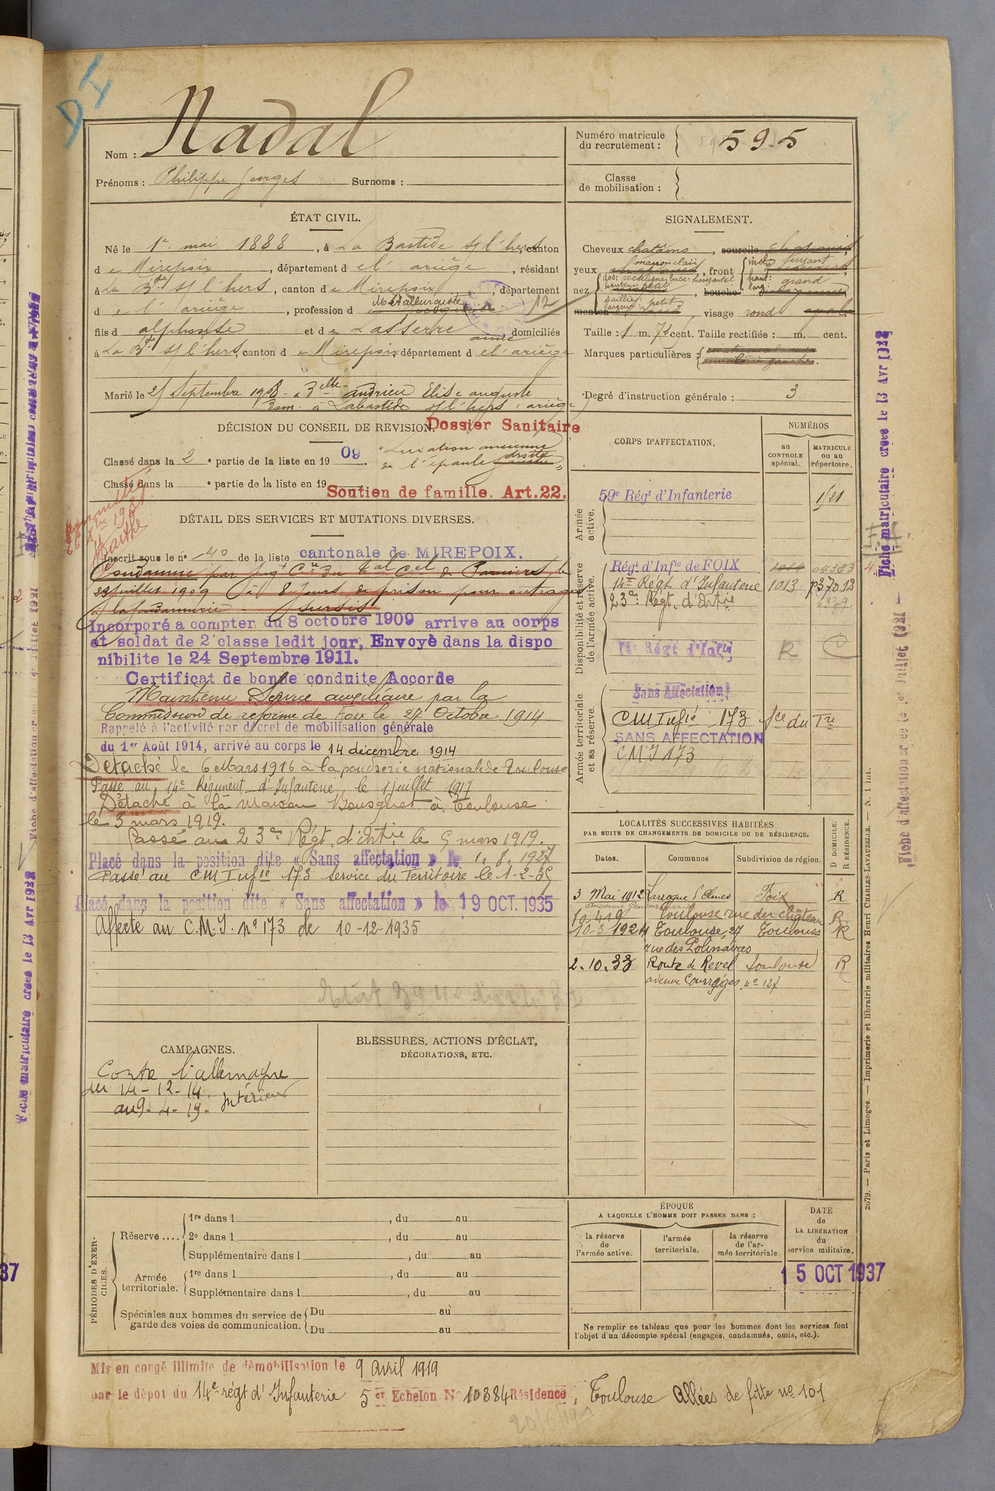 Nom : Nadal
Prénoms : Philippe Georges Surnoms :
Numéro matricule
du recrutement : 595
Classe
de mobilisation :
ÉTAT CIVIL.
Né le 1er mai 1888, à La Bastide s/ l'hers canton
de Mirepoix, département de l'ariège, résidant
à La Bde s/ l'hers, canton de Mirepoix, département
de l'ariège, profession de Métallurgiste 12
fils d alphonse et de Lasserre anne, domiciliés
à La Bde s/ l'hers, canton de Mirepoix département de l'ariège
Marié le 25 Septembre 1908 à Melle andrieu Elise auguste
Dom. à Labastide s/ l'hers (ariège)
SIGNALEMENT.
Cheveux chatains, sourcils
yeux marron clair, front incl: fuyant
haut: grand
nez dos: rectiligne, base: horizontal
saillie: petit
menton, visage rond
bouche
Taille : 1 m. 75 cent. Taille rectifiée : m. cent.
Marques particulières
Degré d'instruction générale : 3
DÉCISION DU CONSEIL DE REVISION.
Dossier Sanitaire
Classé dans la 2e partie de la liste en 1909. Luxation ancienne
de l'épaule droite
Classé dans la e partie de la liste en 19
Soutien de famille. Art. 22.
DÉTAIL DES SERVICES ET MUTATIONS DIVERSES.
Inscrit sous le n° 40 de la liste cantonale de MIREPOIX.
Condamné par jugt Cel du Tal Cel de Pamiers le
23 juillet 1909 à 8 jours de prison pour outrages
à la gendarmerie Sursis
Incorporé a compter du 8 octobre 1909 arrive au corps
et soldat de 2e classe ledit jour, Envoyé dans la dispo
nibilite le 24 Septembre 1911.
Certificat de bonne conduite Accorde
Maintenu Service auxiliaire par la
Commission de réforme de Foix le 27 Octobre 1914
Rappelé à l'activité par décret de mobilisation générale
du 1er Août 1914, arrivé au corps le 14 décembre 1914
Détaché le 6 Mars 1916 à la poudrerie nationale de Toulouse
Passé au 14e Régiment d'Infanterie, le 1 juillet 1917
Détaché à la maison Bousquet à Toulouse
le 3 mars 1919.
Passé au 23e Régt d'Artie le 5 mars 1919.
Placé dans la position dite « Sans affectation » le 1.8.1927
Passé au CM Infie 173 Service du Territoire le 1-2-35
Placé dans la position dite « Sans affectation » le 19 OCT. 1935
Affecté au C.M.I. n° 173 de 10-12-1935
CORPS D'AFFECTATION.
NUMÉROS
au
CONTROLE
spécial.
MATRICULE
ou au
répertoire.
Armée
active.
59e Régt d'Infanterie 1121
Disponibilité et réserve
de l'armée active.
Régt d'Infie de FOIX
14e Régt d'Infanterie 1013
23e Régt d'Artie
14e Régt d'Infie R C
Armée territoriale
et sa réserve.
Sans Affectation
CM Infie 173 Sce du Tre
SANS AFFECTATION
CMI 173
LOCALITÉS SUCCESSIVES HABITÉES
PAR SUITE DE CHANGEMENTS DE DOMICILE OU DE RÉSIDENCE.
Dates. Communes Subdivision de région. D DOMICILE. R RÉSIDENCE.
3 Mai 1912 Laroque d'Olmes Foix R
10.4.19 Toulouse, rue du château R
10-3-1924 Toulouse, 27 Toulouse R
rue des Polinaires
2.10.33 Route de Revel Toulouse R
avenue Courrèges n° 127
CAMPAGNES.
Contre l'allemagne
du 14-12-14
au 9-4-19. Intérieur
BLESSURES, ACTIONS D'ÉCLAT,
DÉCORATIONS, ETC.
PÉRIODES D'EXERCICES.
Réserve .... 1re dans l , du au
2e dans l , du au
Supplémentaire dans l , du au
Armée
territoriale. 1re dans l , du au
Supplémentaire dans l , du au
Spéciales aux hommes du service de
garde des voies de communication. Du au
Du au
ÉPOQUE
A LAQUELLE L'HOMME DOIT PASSER DANS :
la réserve
de
l'armée active.
l'armée
territoriale.
la réserve
de l'ar-
mée territoriale.
DATE
de
LA LIBÉRATION
du
service militaire.
15 OCT 1937
Ne remplir ce tableau que pour les hommes dont les services font
l'objet d'un décompte spécial (engagés, condamnés, omis, etc.).
Mis en congé illimité de démobilisation le 9 avril 1919
par le dépot du 14e régt d'Infanterie 5e Echelon N° 10384 Résidence, Toulouse Allées de fitte n° 101
Fiche matriculaire créée le 13 Avr 1922
2079. — Paris et Limoges. — Imprimerie et librairie militaires Henri CHARLES-LAVAUZELLE. — N. 1 int.
37